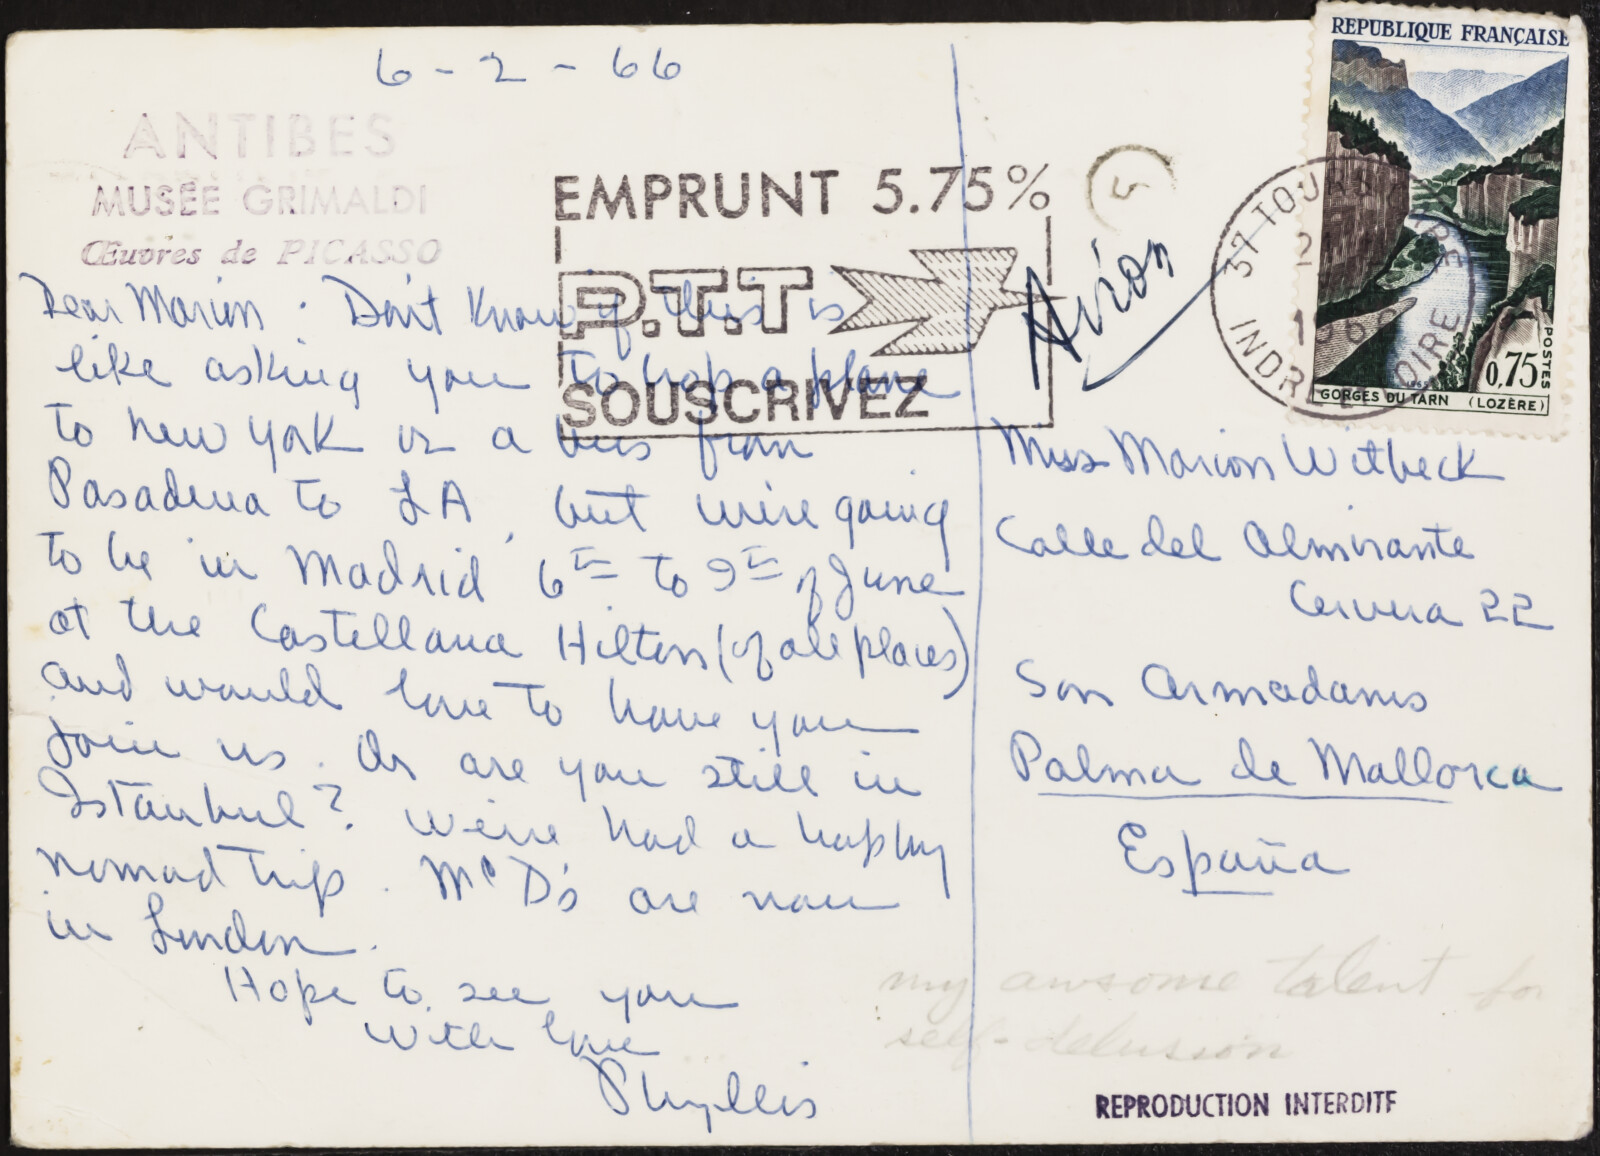 6-2-66
ANTIBES
MUSÉE GRIMALDI
Œuvres de PICASSO
Dear Marion. Don't know if this is
like asking you to hop a plane
to New York or a bus from
Pasadena to LA, but we're going
to be in Madrid 6th to 9th of June
at the Castellana Hilton (of all places)
and would love to have you
join us. Or are you still in
Istanbul? We've had a happy
nomad trip. McD's are now
in London.
Hope to see you
With love
Phyllis
EMPRUNT 5.75%
P.T.T
SOUSCRIVEZ
5
Avion
REPUBLIQUE FRANÇAISE
POSTES
0,75
GORGES DU TARN (LOZÈRE)
37 TOURS
INDRE ET LOIRE
Miss Marion Witbeck
Calle del Almirante
Cervera 22
Son Armadams
Palma de Mallorca
España
my awsome talent for
self-delusion
REPRODUCTION INTERDITE